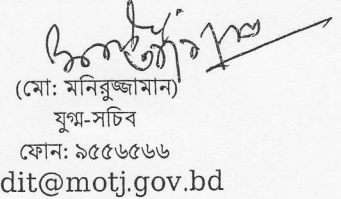 (মো: মনিরুজ্জামান)
যুগ্ম-সচিব
ফোন: ৯৫৫৬৫৬৬
dit@motj.gov.bd